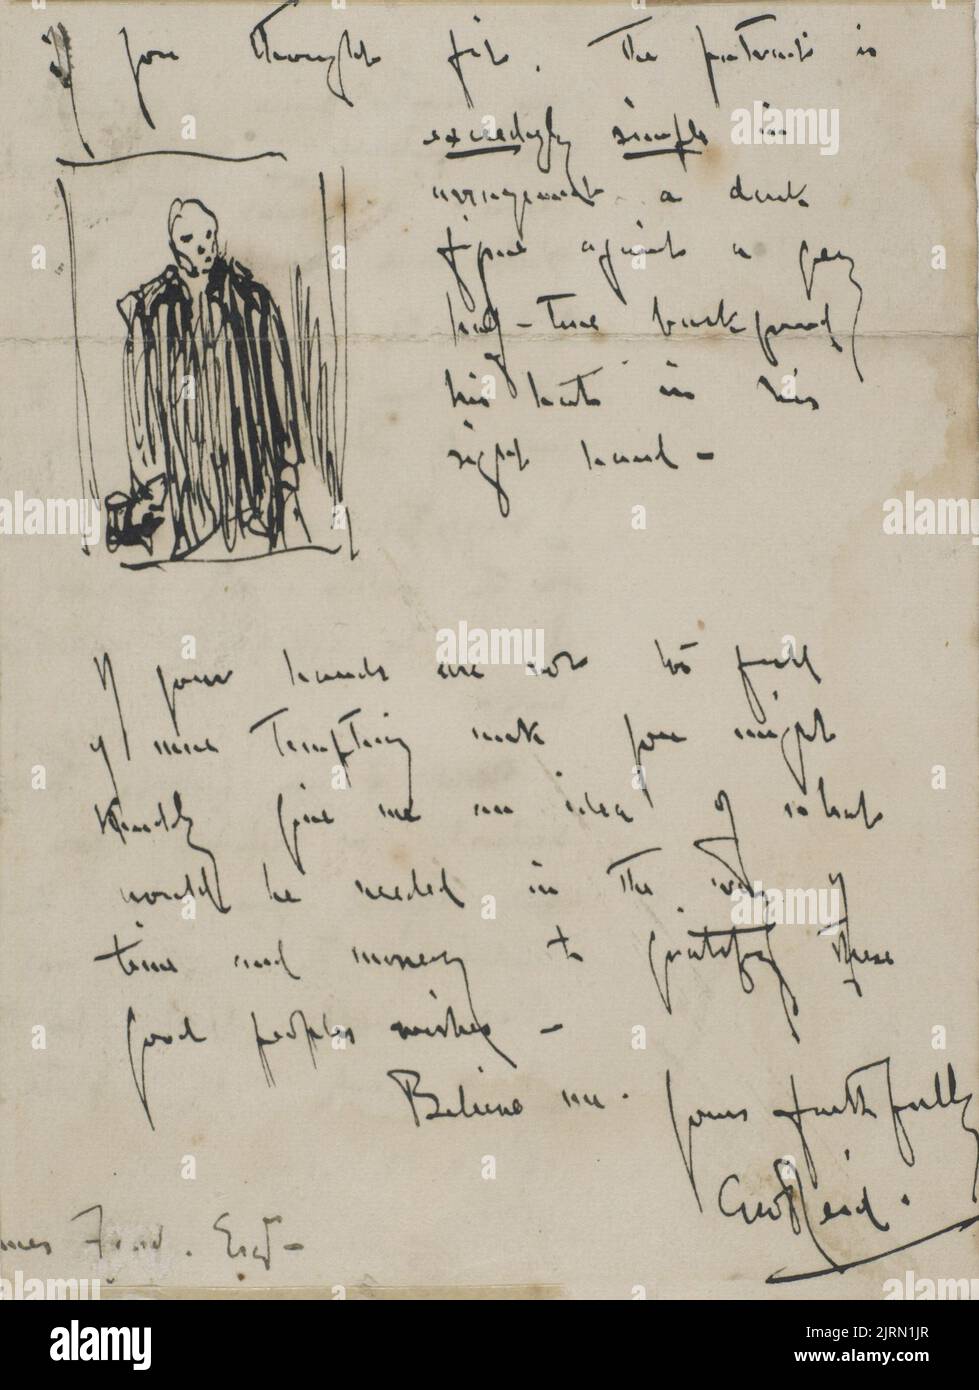 if you thought fit. The portrait is
exceedingly simple in
arrangement a dark
figure against a grey
half-tone background,
his hat in his
right hand –
If your hands are not too full
of more tempting work you might
kindly give me an idea of what
would be needed in the way of
time and money to gratify these
good peoples wishes –
Believe me. yours faithfully
Geo Reid.
Esqr –
a alamy
alamy
Image ID: 2JRN1JR
www.alamy.com